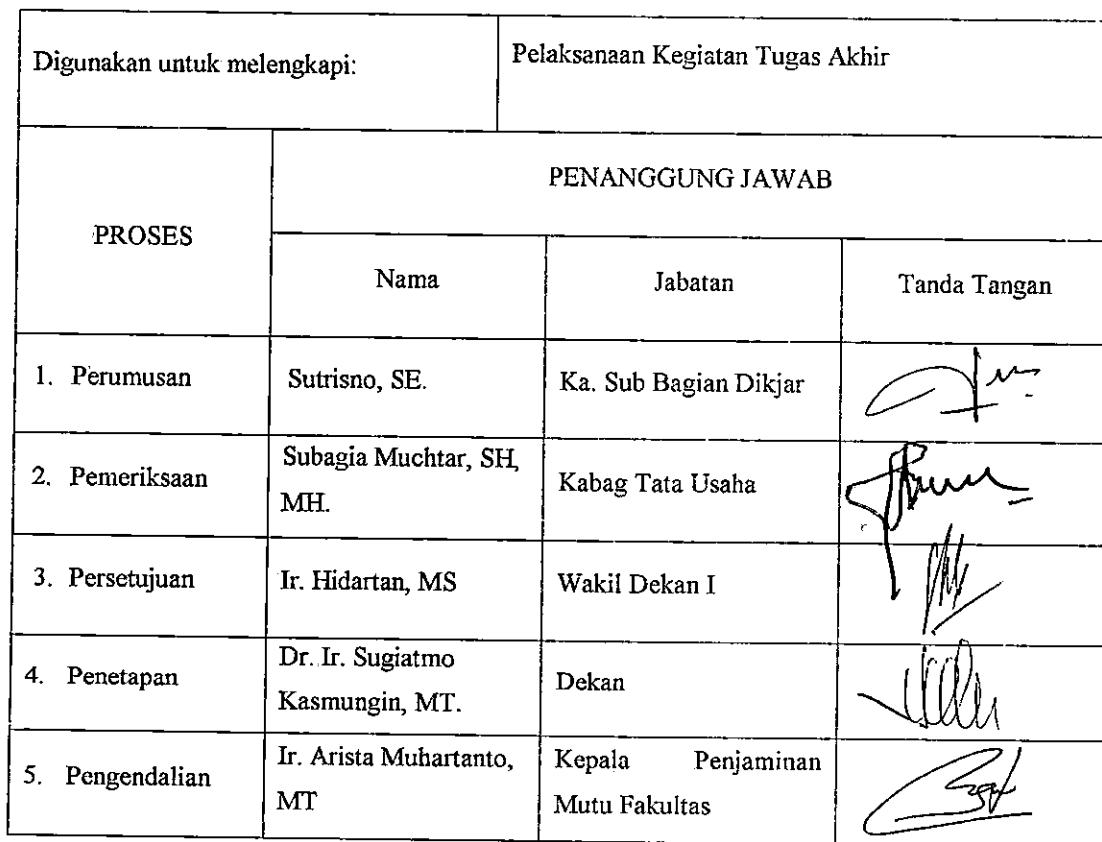 Digunakan untuk melengkapi:
Pelaksanaan Kegiatan Tugas Akhir
PROSES
PENANGGUNG JAWAB
Nama
Jabatan
Tanda Tangan
1. Perumusan
Sutrisno, SE.
Ka. Sub Bagian Dikjar
2. Pemeriksaan
Subagia Muchtar, SH,
MH.
Kabag Tata Usaha
3. Persetujuan
Ir. Hidartan, MS
Wakil Dekan I
4. Penetapan
Dr. Ir. Sugiatmo
Kasmungin, MT.
Dekan
5. Pengendalian
Ir. Arista Muhartanto,
MT
Kepala Penjaminan
Mutu Fakultas